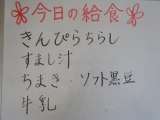 今日の給食
きんぴらちらし
すまし汁
ちまき・ソフト黒豆
牛乳